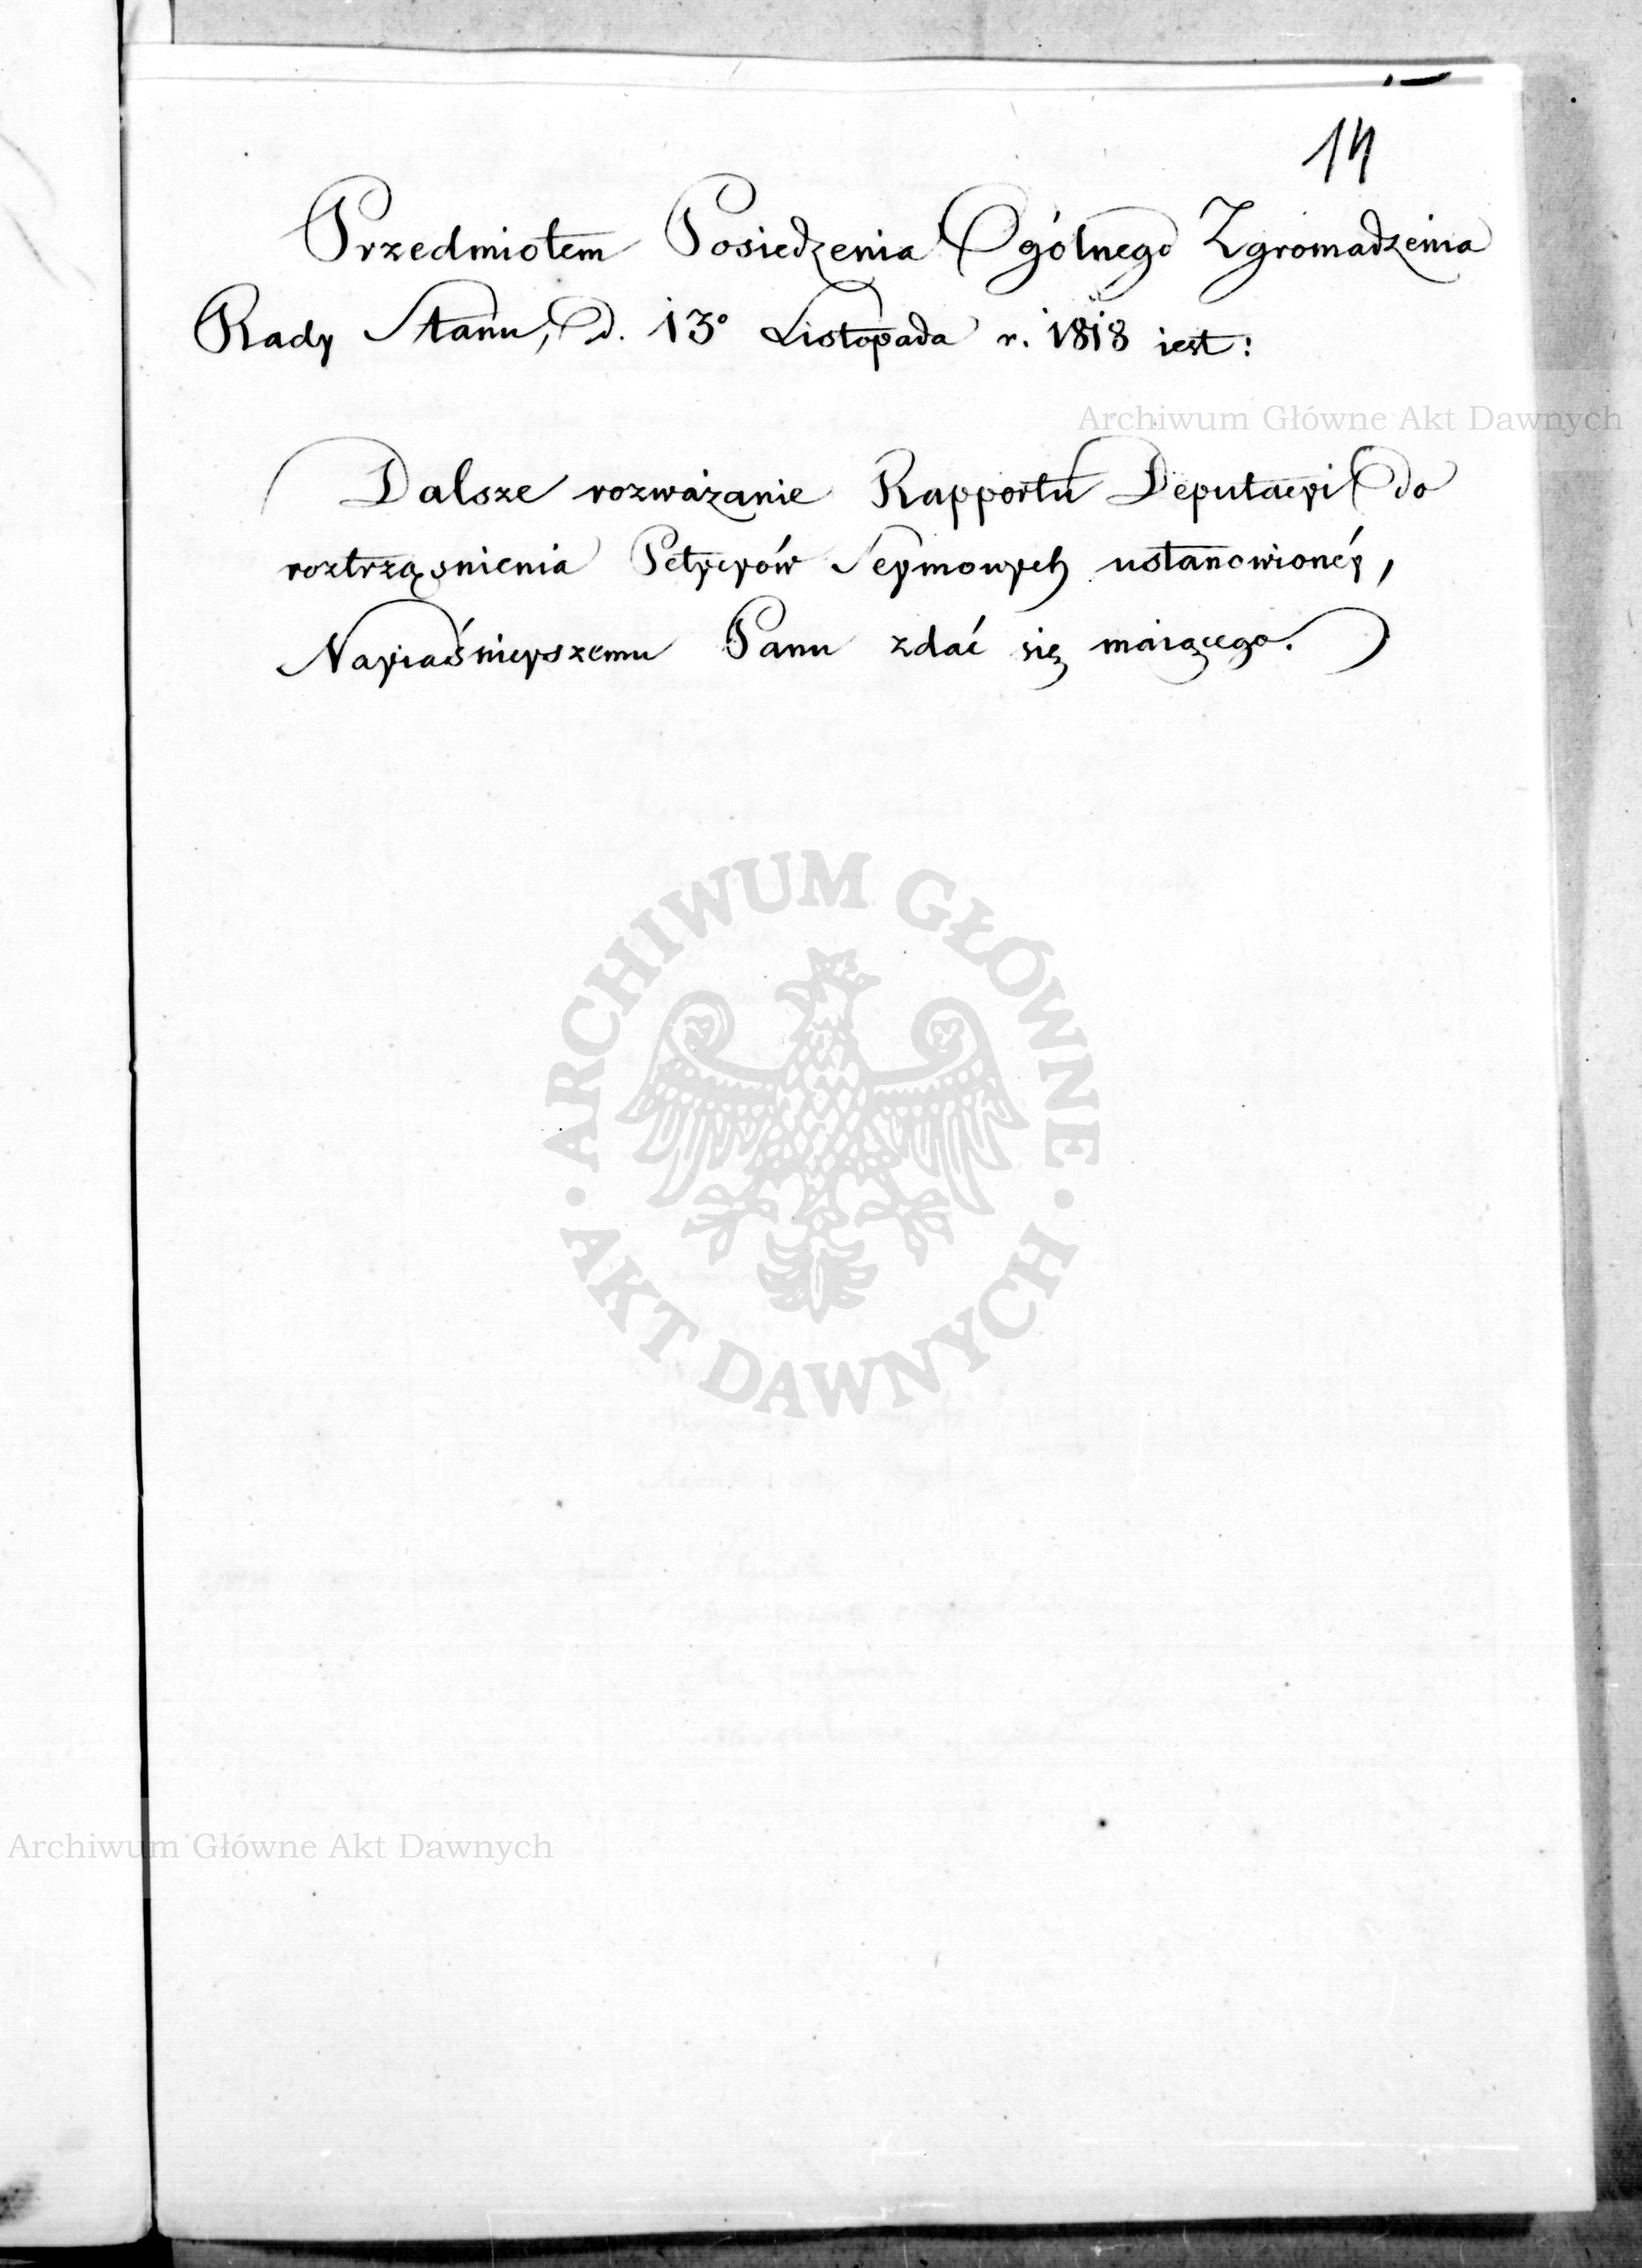 14
Przedmiotem Posiedzenia Ogólnego Zgromadzenia
Rady Stanu, d. 13º Listopada r. 1818 iest:
Archiwum Główne Akt Dawnych
Dalsze rozważanie Rapportu Deputacyi do
roztrząśnienia Petycyów Seymowych ustanowionéy,
Nayiaśnieyszemu Panu zdać się maiącego.
ARCHIWUM GŁÓWNE
AKT DAWNYCH
Archiwum Główne Akt Dawnych